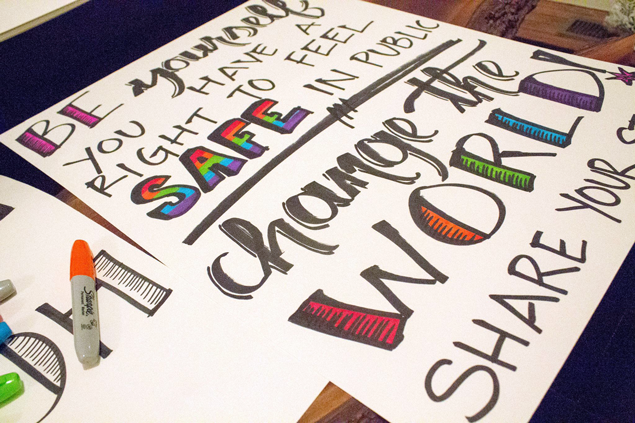 BE yourself
YOU HAVE A
RIGHT TO FEEL
SAFE IN PUBLIC
change the
WORLD!
SHARE YOUR
OH
Sharpie